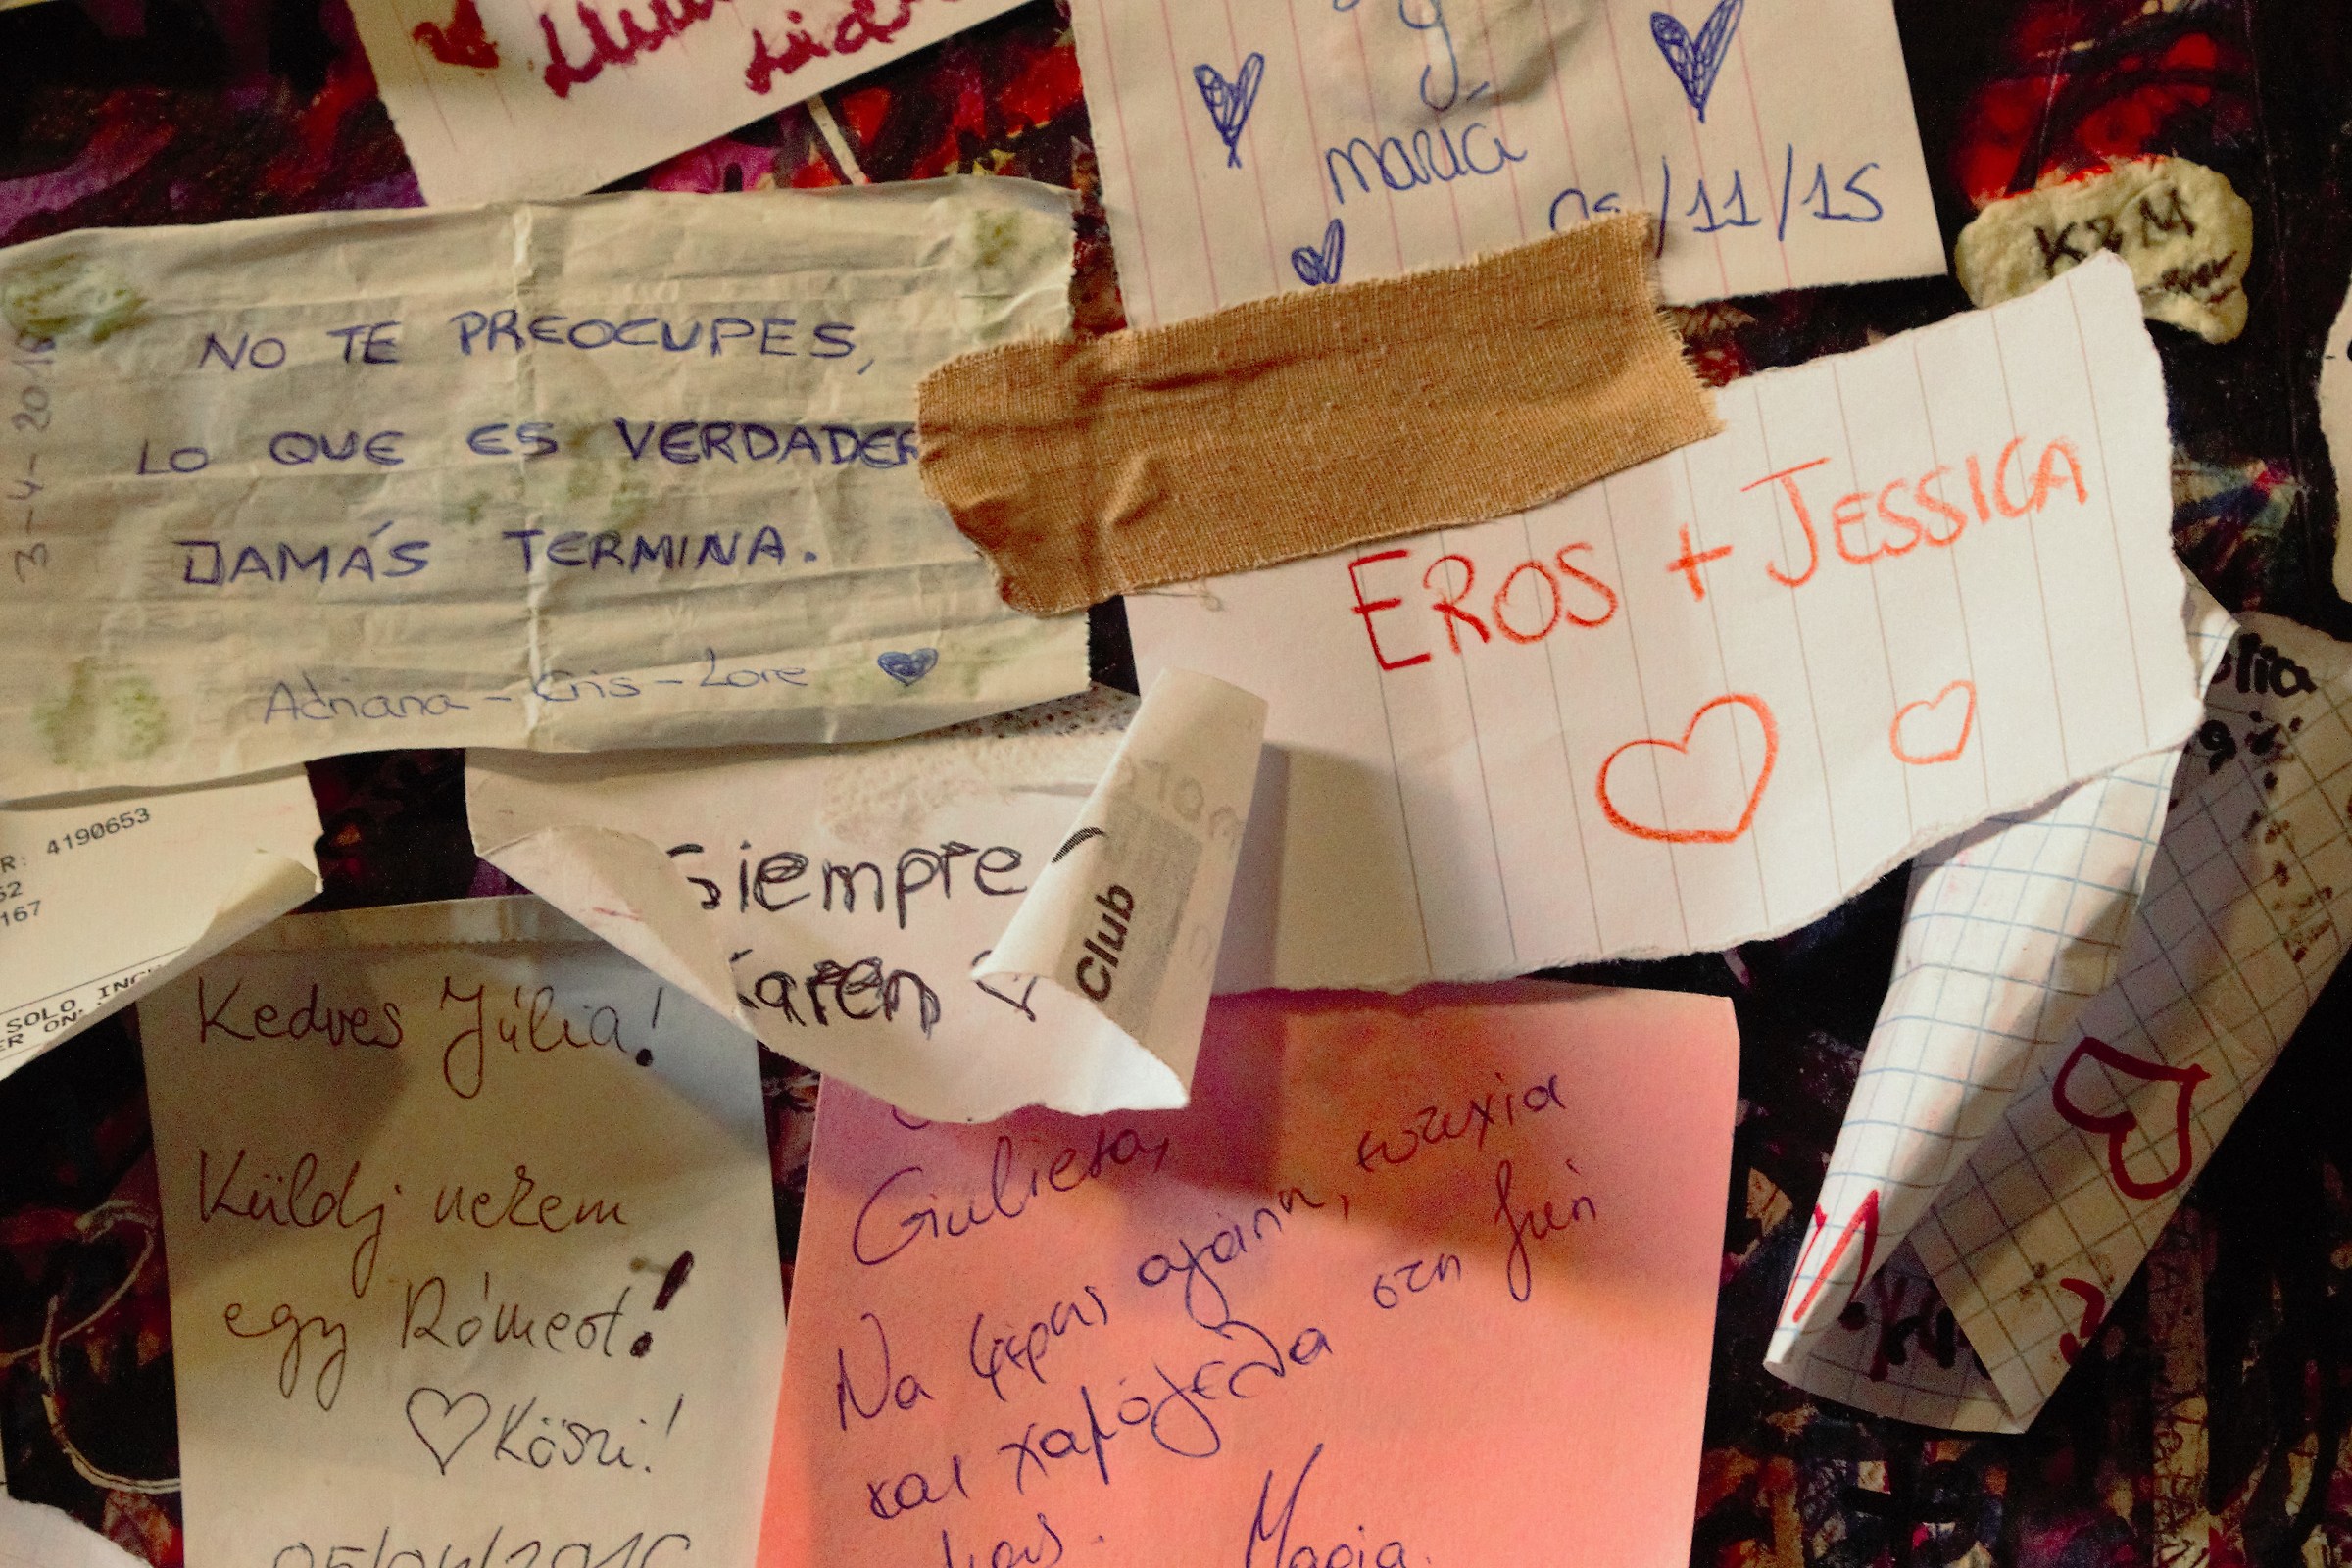 y
maría
/11/15
K & M
3-4-201
NO TE PREOCUPES,
LO QUE ES VERDADER
JAMÁS TERMINA.
Adriana - Cris - Lore
EROS + JESSICA
R: 4190653
52
167
SOLO INC
ER ON:
Siempre
Karen
Club
Kedves Júlia!
Küldj nekem
egy Rómeót!
Köszi!
05/04/2016
Giulieta,
Να φέρεις αγάπη, ευτυχία
και χαμόγελα στη ζωή
μας.
Μαρία.